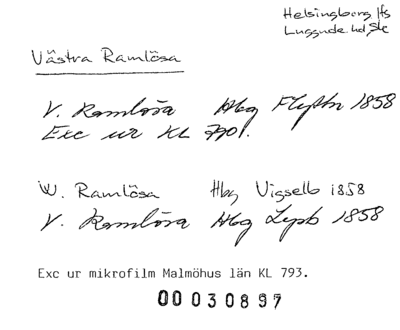 Helsingborg Hs
Luggude hd, Sk
Västra Ramlösa
V. Ramlösa Hbg Flyttn 1858
Exc ur KL 790.
W. Ramlösa Hbg Vigselb 1858
V. Ramlösa Hbg Lysb 1858
Exc ur mikrofilm Malmöhus län KL 793.
00030897